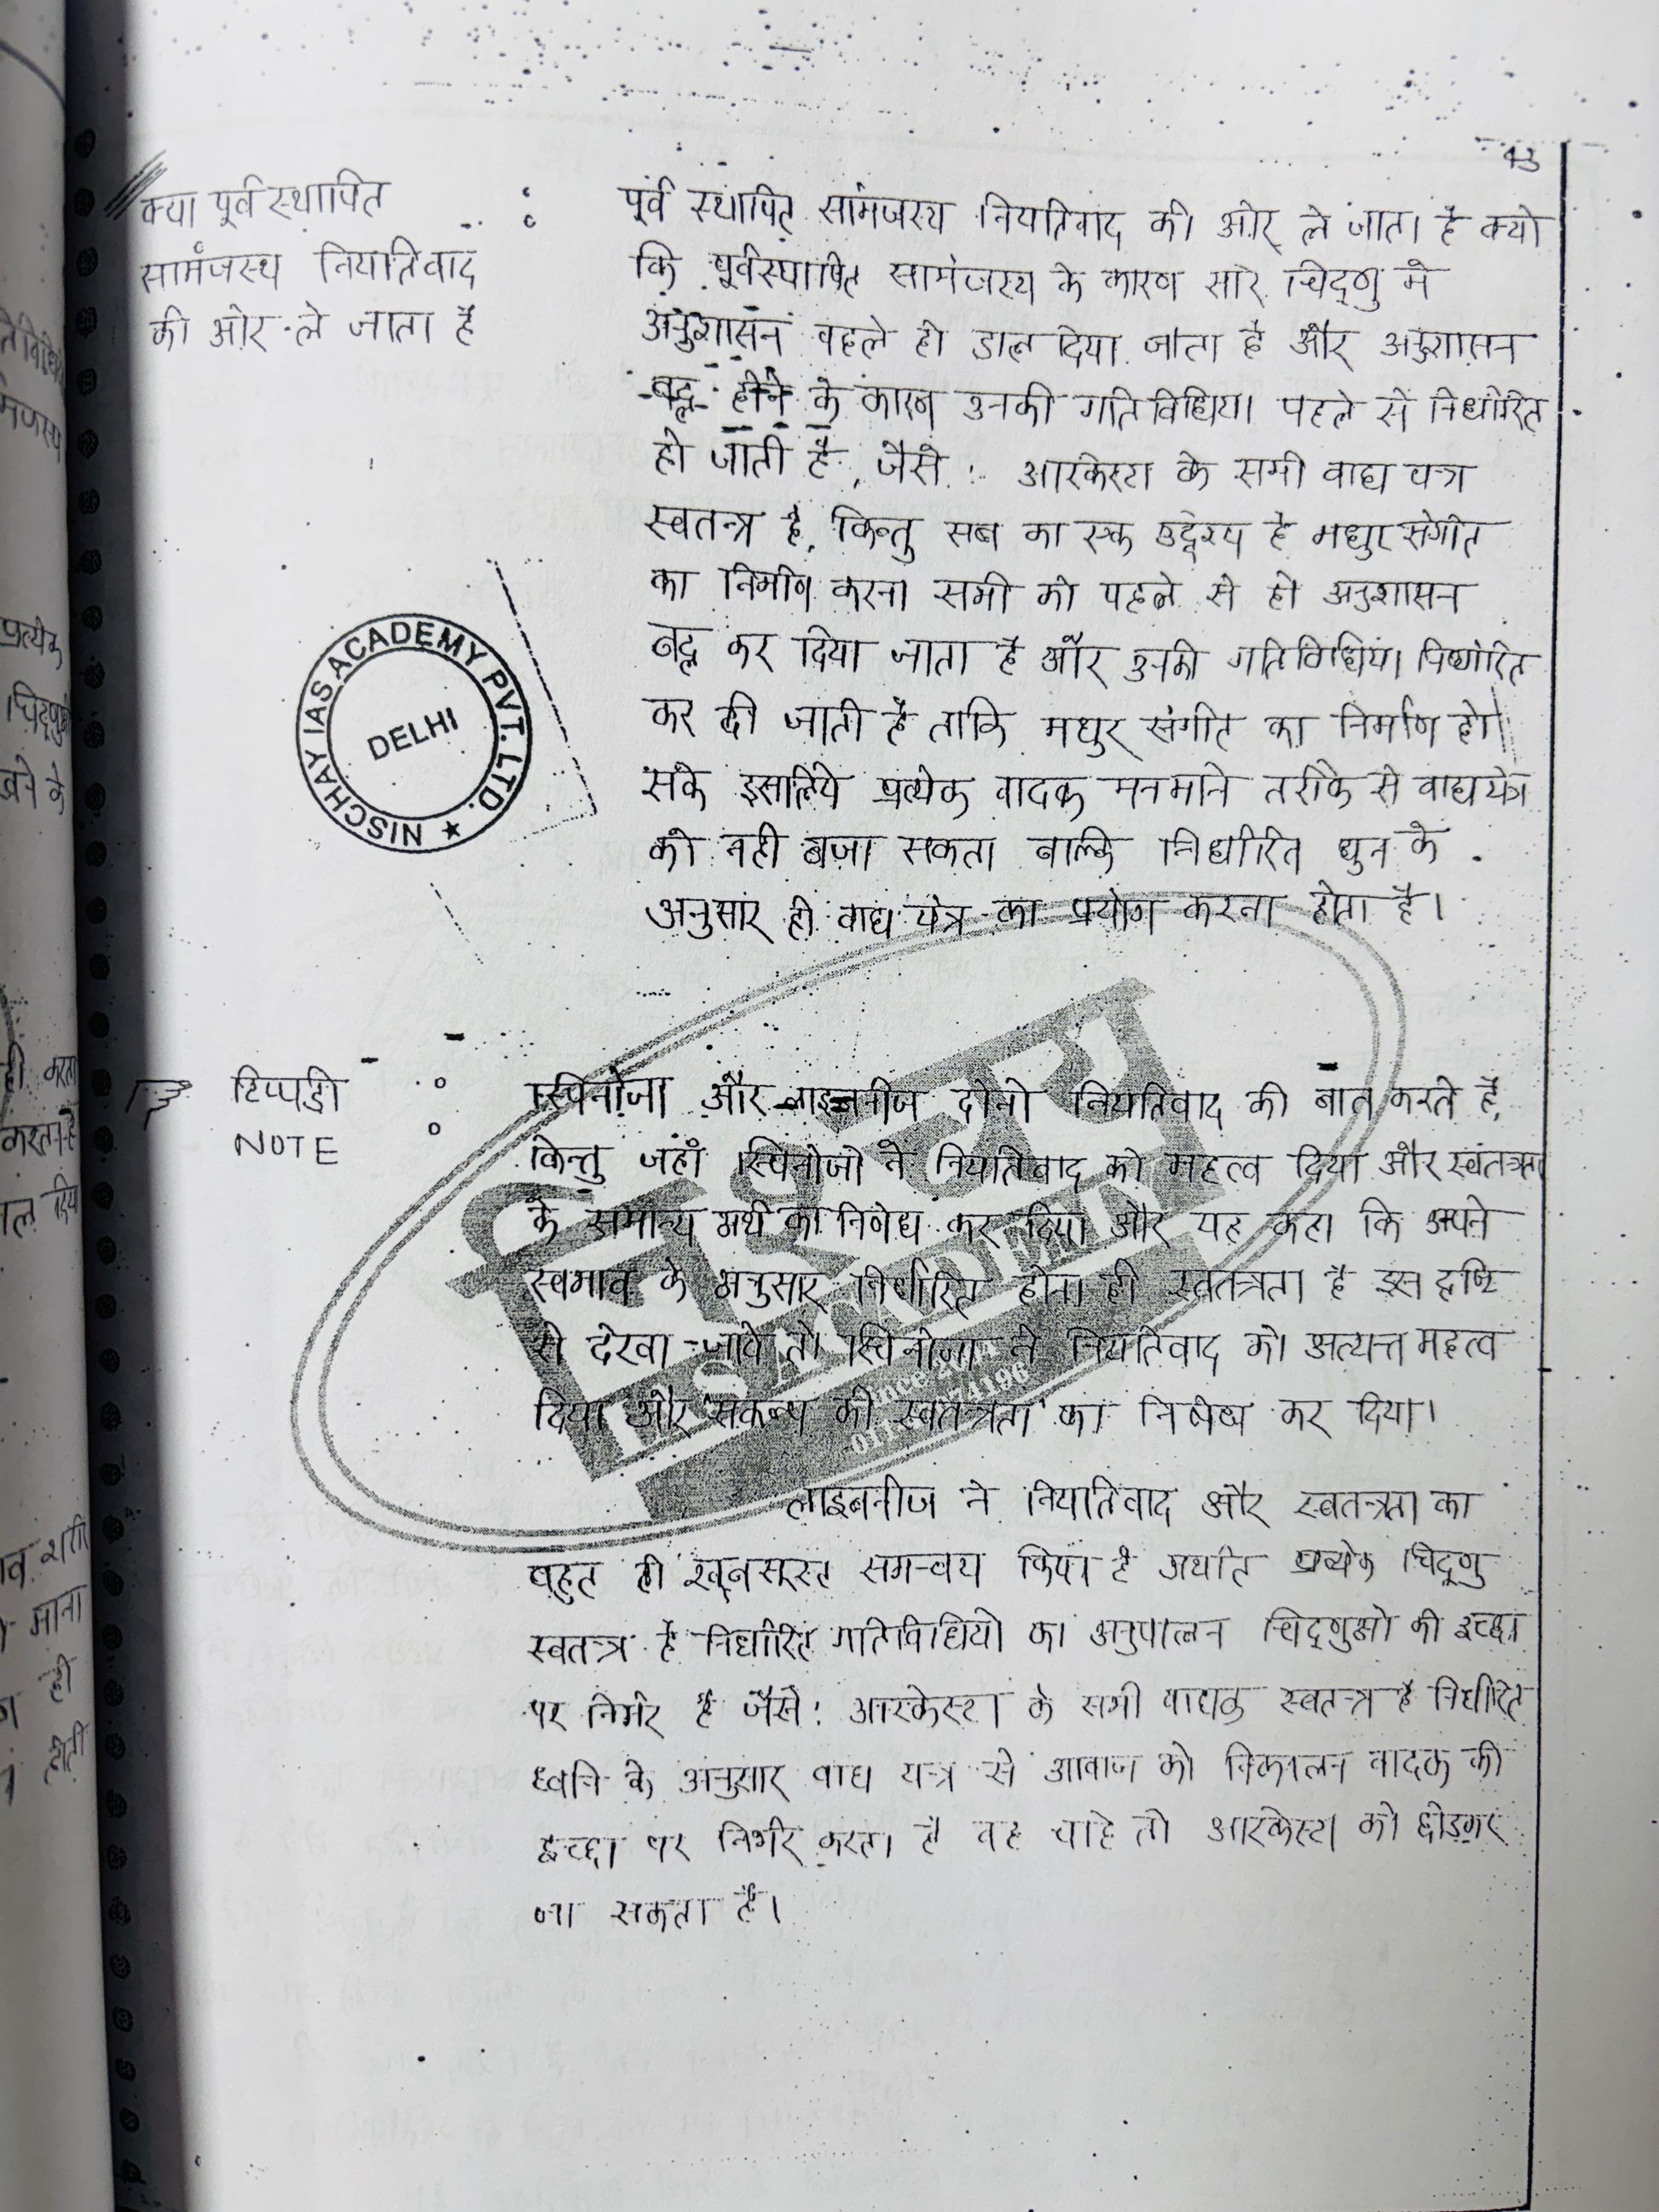 43
क्या पूर्व स्थापित
सामंजस्य नियतिवाद
की ओर ले जाता है
:
पूर्व स्थापित सामंजस्य नियतिवाद की ओर ले जाता है क्यो
कि पूर्वस्थापित सामंजस्य के कारण सारे चिद्णु मे
अनुशासन पहले ही डाल दिया जाता है और अनुशासन
बद्ध होने के कारण उनकी गतिविधिया पहले से निर्धारित
हो जाती है, जैसे : आरकेस्टा के सभी वाद्य यन्त्र
स्वतन्त्र है, किन्तु सब का एक उद्देश्य है मधुर संगीत
का निर्माण करना सभी को पहले से ही अनुशासन
बद्ध कर दिया जाता है और उनकी गतिविधिया निर्धारित
कर दी जाती है ताकि मधुर संगीत का निर्माण हो
सके इसलिये प्रत्येक वादक मनमाने तरीके से वाद्ययंत्र
को नही बजा सकता बल्कि निर्धारित धुन के
अनुसार ही वाद्य यंत्र का प्रयोग करना होता है।
NISCHAY IAS ACADEMY PVT. LTD. ★
DELHI
टिप्पडी
NOTE
:
स्पिनोजा और लाइबनीज दोनो नियतिवाद की बात करते है,
किन्तु जहाँ स्पिनोजा ने नियतिवाद को महत्व दिया और स्वतंत्रता
के समान्य अर्थ का निषेध कर दिया और यह कहा कि अपने
स्वभाव के अनुसार निर्धारित होना ही स्वतन्त्रता है इस दृष्टि
से देखा जाये तो स्पिनोजा ने नियतिवाद को अत्यन्त महत्व
दिया और संकल्प की स्वतन्त्रता का निषेध कर दिया।
लाइबनीज ने नियतिवाद और स्वतन्त्रता का
बहुत ही खूबसूरत समन्वय किया है अर्थात प्रत्येक चिद्णु
स्वतन्त्र है निर्धारित गतिविधियो का अनुपालन चिद्णुओ की इच्छा
पर निर्भर है जैसे : आरकेस्टा के सभी वादक स्वतन्त्र है निर्धारित
ध्वनि के अनुसार वाद्य यन्त्र से आवाज को निकालन वादक की
इच्छा पर निर्भर करता है वह चाहे तो आरकेस्टा को छोड़कर
जा सकता है।
निश्चय